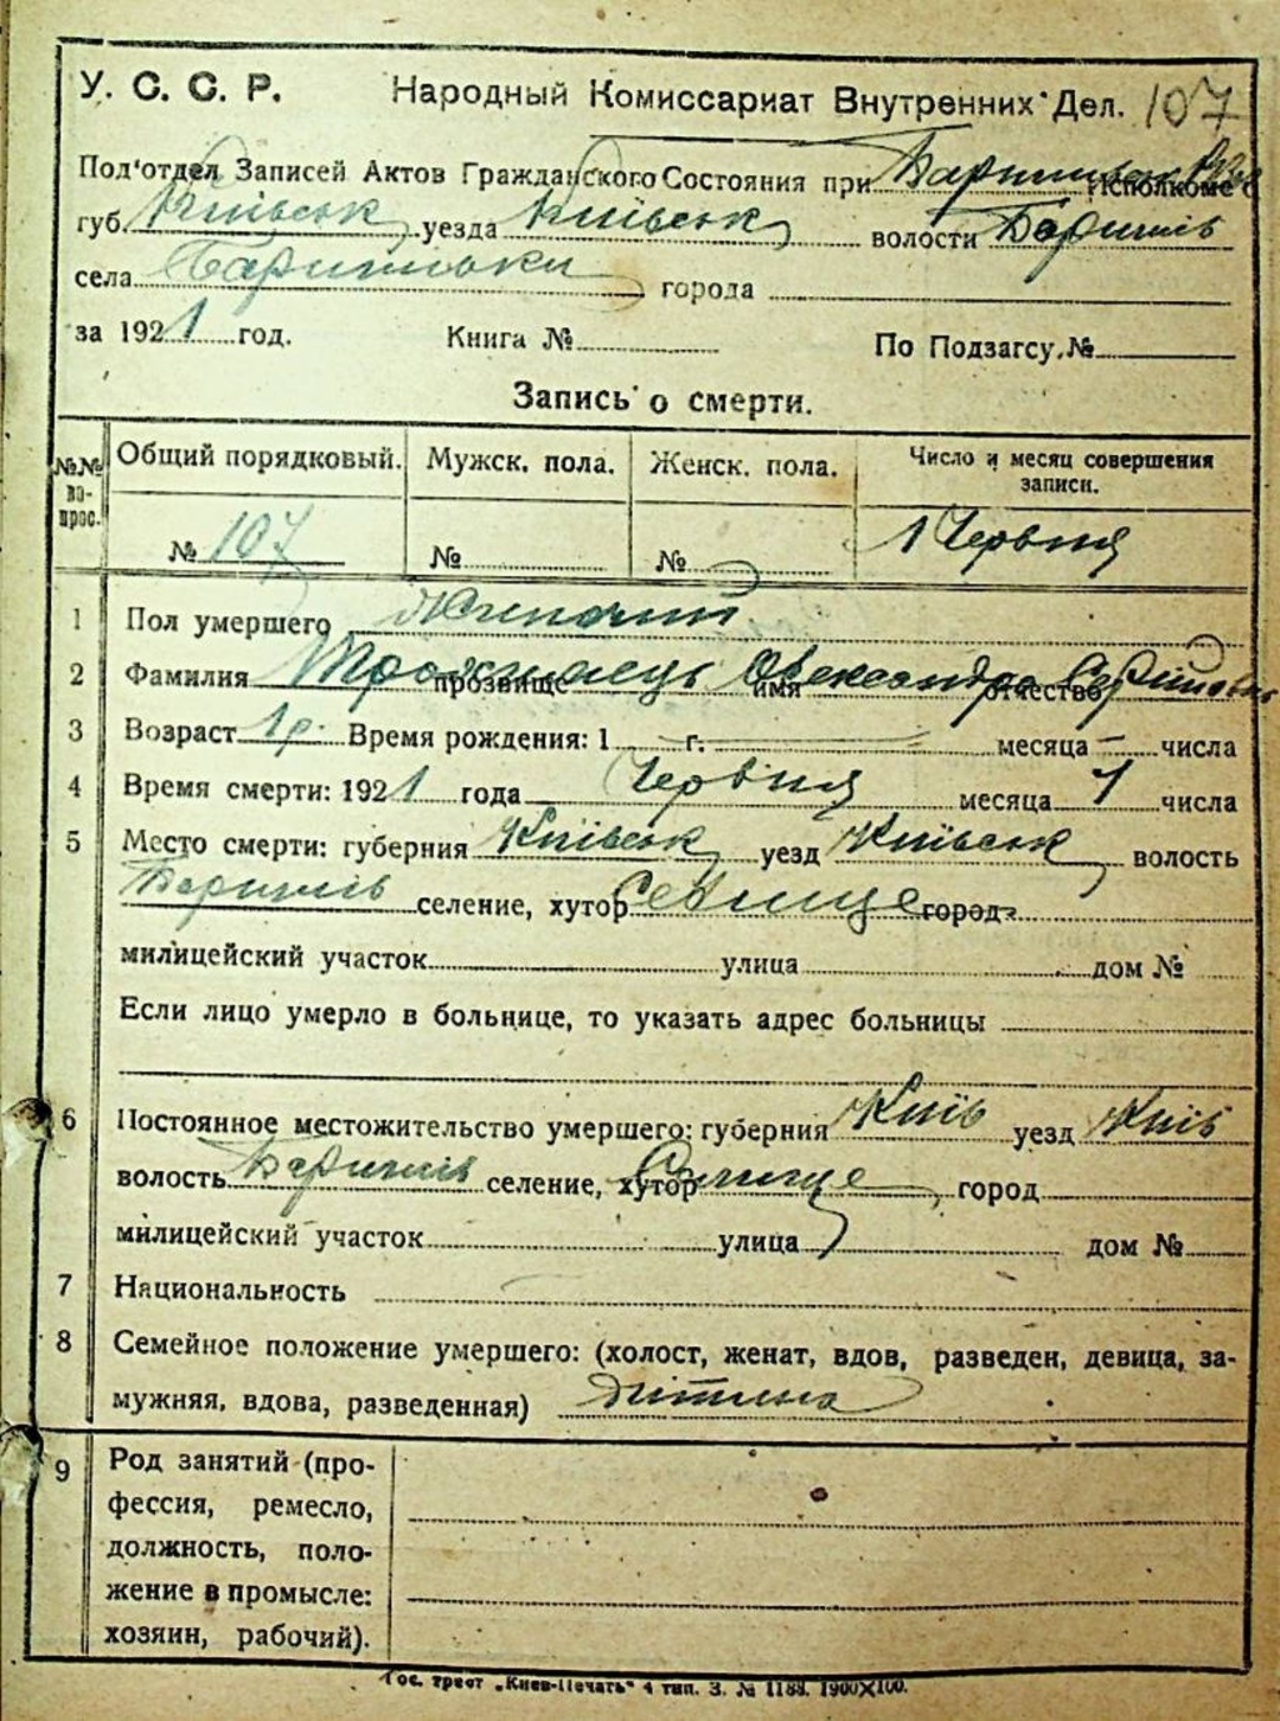 У. С. С. Р. Народный Комиссариат Внутренних Дел. 107
Под'отдел Записей Актов Гражданского Состояния при Исполкоме
губ. Київськ уезда Київськ волости Баришів
села Баришівки города
за 1921 год. Книга № По Подзагсу №
Запись о смерти.
№№ вопрос. Общий порядковый. Мужск. пола. Женск. пола. Число и месяц совершения записи.
№ 107 № № 1 Червня
1 Пол умершего Жіночий
2 Фамилия прозвище имя Олександра отчество
3 Возраст 1 р. Время рождения: 1 г. месяца — числа
4 Время смерти: 1921 года Червня месяца 1 числа
5 Место смерти: губерния Київськ уезд Київськ волость
Баришів селение, хутор Селище город
милицейский участок улица дом №
Если лицо умерло в больнице, то указать адрес больницы
6 Постоянное местожительство умершего: губерния Київ уезд Київ
волость Баришів селение, хутор Селище город
милицейский участок улица дом №
7 Национальность
8 Семейное положение умершего: (холост, женат, вдов, разведен, девица, за-
мужняя, вдова, разведенная) дітина
9 Род занятий (про-
фессия, ремесло,
должность, поло-
жение в промысле:
хозяин, рабочий).
Гос. трест „Киев-Печать" 4 тип. З. № 1188. 1900X100.